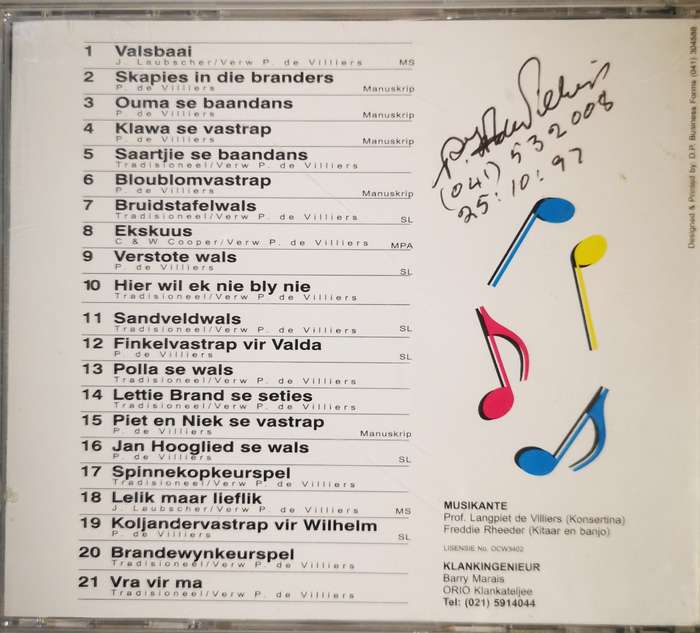 1 Valsbaai
J. Laubscher/Verw P. de Villiers MS
2 Skapies in die branders
P. de Villiers Manuskrip
3 Ouma se baandans
P. de Villiers Manuskrip
4 Klawa se vastrap
P. de Villiers Manuskrip
5 Saartjie se baandans
Tradisioneel/Verw P. de Villiers
6 Bloublomvastrap
P. de Villiers Manuskrip
7 Bruidstafelwals
Tradisioneel/Verw P. de Villiers SL
8 Ekskuus
C & W Cooper/Verw P. de Villiers MPA
9 Verstote wals
P. de Villiers SL
10 Hier wil ek nie bly nie
Tradisioneel/Verw P. de Villiers
11 Sandveldwals
Tradisioneel/Verw P. de Villiers SL
12 Finkelvastrap vir Valda
P. de Villiers SL
13 Polla se wals
Tradisioneel/Verw P. de Villiers
14 Lettie Brand se seties
Tradisioneel/Verw P. de Villiers
15 Piet en Niek se vastrap
P. de Villiers Manuskrip
16 Jan Hooglied se wals
P. de Villiers SL
17 Spinnekopkeurspel
Tradisioneel/Verw P. de Villiers
18 Lelik maar lieflik
J. Laubscher/Verw P. de Villiers MS
19 Koljandervastrap vir Wilhelm
P. de Villiers SL
20 Brandewynkeurspel
Tradisioneel/Verw P. de Villiers
21 Vra vir ma
Tradisioneel/Verw P. de Villiers
(041) 532008
25:10:97
MUSIKANTE
Prof. Langpiet de Villiers (Konsertina)
Freddie Rheeder (Kitaar en banjo)
LISENSIE No. OCW3402
KLANKINGENIEUR
Barry Marais
ORIO Klankateljee
Tel: (021) 5914044
Designed & Printed by: D.P. Business Forms (041) 304588